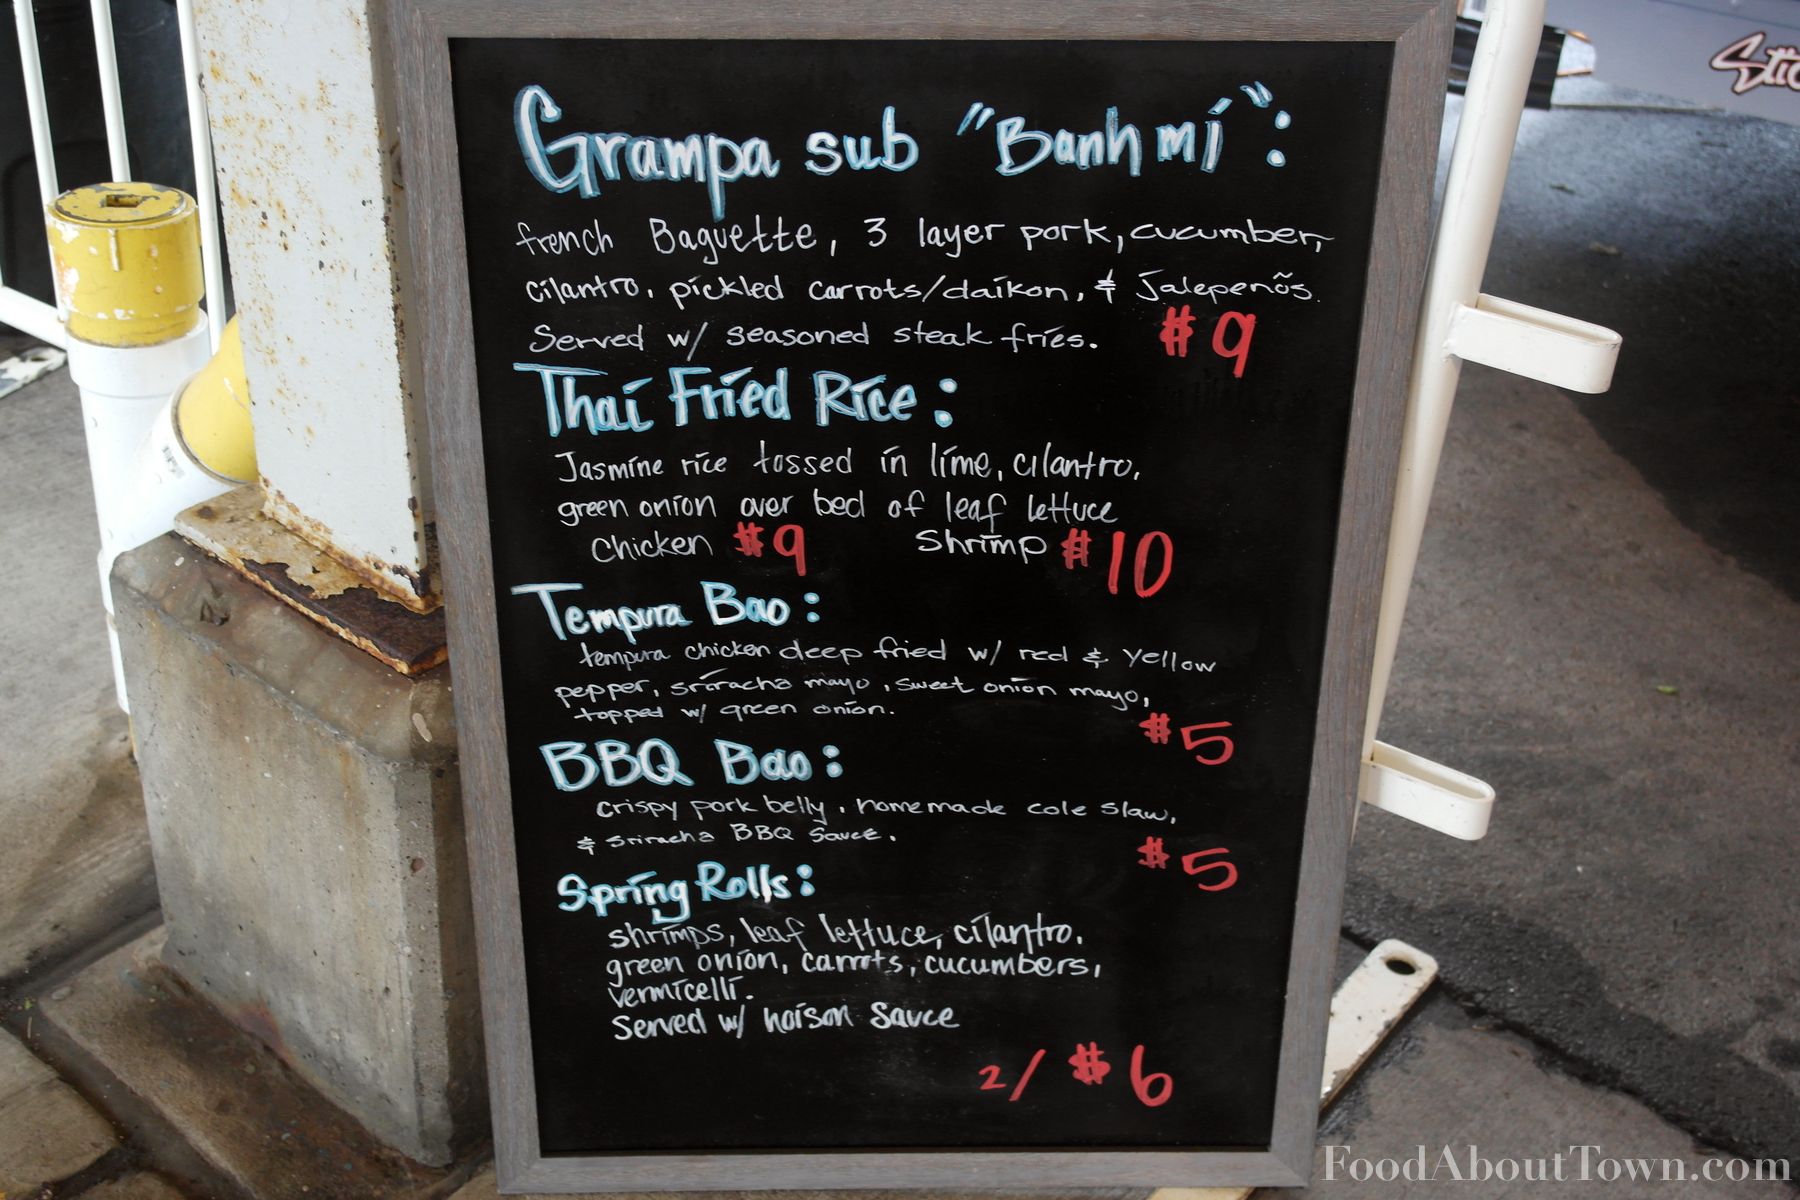 Grampa sub "Banh mi":
french Baguette, 3 layer pork, cucumber,
cilantro, pickled carrots/daikon, & jalepeños.
Served w/ seasoned steak fries. $9
Thai Fried Rice:
Jasmine rice tossed in lime, cilantro,
green onion over bed of leaf lettuce
Chicken $9 Shrimp $10
Tempura Bao:
tempura chicken deep fried w/ red & yellow
pepper, sriracha mayo, sweet onion mayo,
topped w/ green onion.
$5
BBQ Bao:
crispy pork belly, homemade cole slaw,
& sriracha BBQ Sauce.
$5
Spring Rolls:
shrimps, leaf lettuce, cilantro,
green onion, carrots, cucumbers,
vermicelli.
Served w/ hoison sauce
2/ $6
FoodAboutTown.com